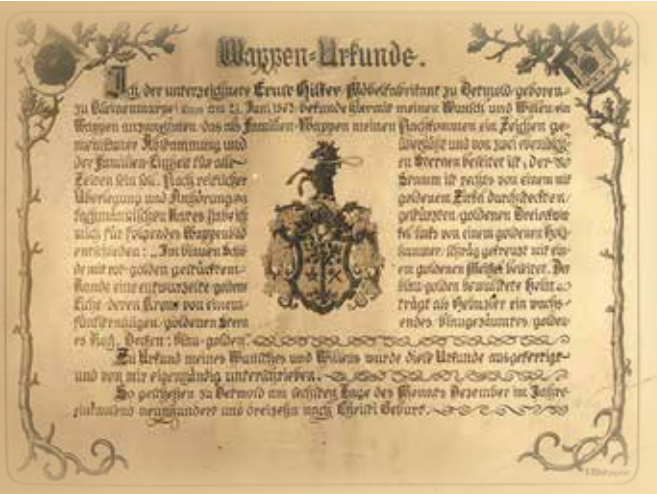 Wappen-Urkunde.
Ich der unterzeichnete Ernst Hilker Möbelfabrikant zu Detmold geboren
zu am 21. Juni bekunde hiermit meinen Wunsch und Willen ein
Wappen anzunehmen das als Familien-Wappen meinen Nachkommen ein Zeichen ge-
meinsamer Abstammung und
der Familien-Einheit für alle
Zeiten sein soll. Nach reiflicher
Überlegung und Anhörung
fachmännischen Rates habe ich
mich für folgendes Wappenbild
entschieden: „Im blauen Schil
de mit rot-golden gestücktem
Rande eine entwurzelte goldene
Eiche deren Krone von einem
fünfstrahligen goldenen Stern
überhöht und von zwei
en Sternen beseitet ist, der
Stamm ist rechts von einem mit
goldenem Zirkel durchsteckten
gestürzten goldenen Dreiecks
links von einem goldenen Holz
hammer schräg gekreuzt mit ein
em goldenen Meißel beseitet. Der
blau-golden bewulstete Helm
trägt als Helmzier ein wachs-
endes blaugezäumtes golden
es Roß. Decken: blau-golden.
Zu Urkund meines Wunsches und Willens wurde diese Urkunde ausgefertigt
und von mir eigenhändig unterschrieben.
So geschehen zu Detmold am sechsten Tage des Monats Dezember im Jahre
eintausend neunhundert und dreizehn nach Christi Geburt.